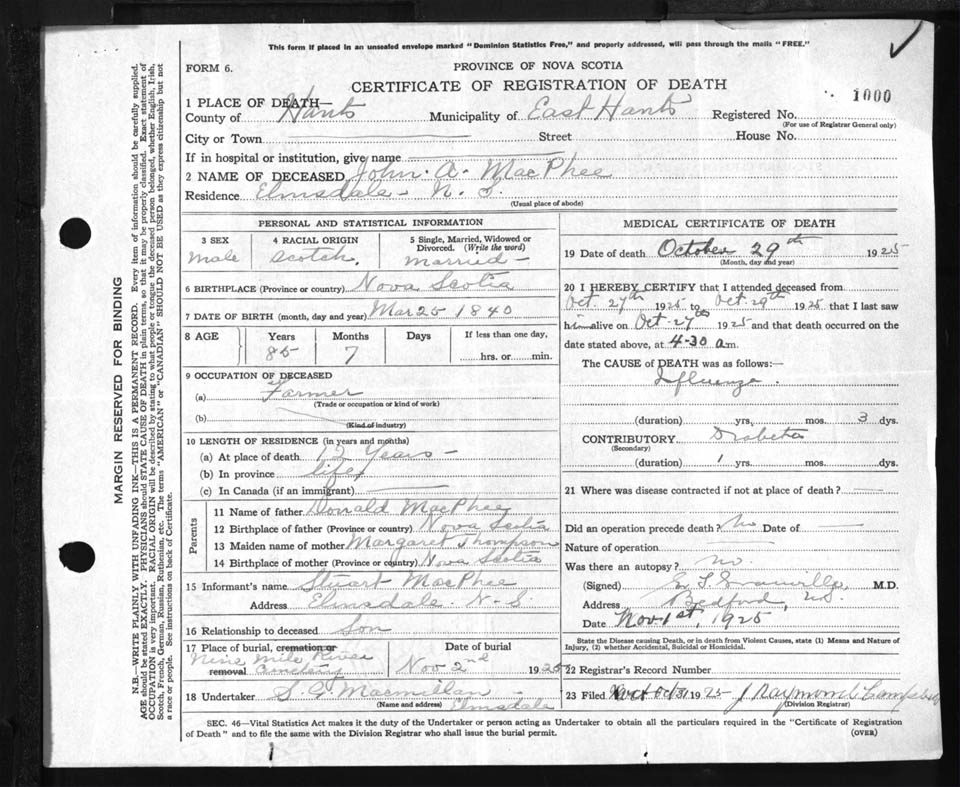 This form if placed in an unsealed envelope marked "Dominion Statistics Free," and properly addressed, will pass through the mails "FREE."
FORM 6.
PROVINCE OF NOVA SCOTIA
CERTIFICATE OF REGISTRATION OF DEATH
1000
1 PLACE OF DEATH—
County of Hants Municipality of East Hants Registered No.
(For use of Registrar General only)
City or Town Street House No.
If in hospital or institution, give name
2 NAME OF DECEASED John A. MacPhee
Residence Elmsdale - N. S.
(Usual place of abode)
PERSONAL AND STATISTICAL INFORMATION
3 SEX 4 RACIAL ORIGIN 5 Single, Married, Widowed or Divorced. (Write the word)
male Scotch. married -
6 BIRTHPLACE (Province or country) Nova Scotia
7 DATE OF BIRTH (month, day and year) Mar 25 1840
8 AGE Years Months Days If less than one day,
85 7 hrs. or min.
9 OCCUPATION OF DECEASED
(a) Farmer
(Trade or occupation or kind of work)
(b)
(Kind of industry)
10 LENGTH OF RESIDENCE (in years and months)
(a) At place of death 12 Years -
(b) In province life
(c) In Canada (if an immigrant)
Parents
11 Name of father Donald MacPhee
12 Birthplace of father (Province or country) Nova Scotia
13 Maiden name of mother Margaret Thompson
14 Birthplace of mother (Province or country) Nova Scotia
15 Informant's name Stuart MacPhee
Address Elmsdale. N. S.
16 Relationship to deceased Son
17 Place of burial, cremation or removal Date of burial
Nine Mile River
Cemetery Nov 2nd 1925
18 Undertaker Macmillan
(Name and address) Elmsdale
MEDICAL CERTIFICATE OF DEATH
19 Date of death October 29th 1925
(Month, day and year)
20 I HEREBY CERTIFY that I attended deceased from
Oct. 27th 1925 to Oct. 29th 1925 that I last saw
him alive on Oct. 27th 1925 and that death occurred on the
date stated above, at 4-30 am.
The CAUSE of DEATH was as follows:—
Influenza.
(duration) yrs. mos. 3 dys.
CONTRIBUTORY Diabetes
(Secondary)
(duration) 1 yrs. mos. dys.
21 Where was disease contracted if not at place of death?
Did an operation precede death? No Date of
Nature of operation
Was there an autopsy? no.
(Signed) M.D.
Address Bedford, NS.
Date Nov 1st, 1925
State the Disease causing Death, or in death from Violent Causes, state (1) Means and Nature of
Injury, (2) whether Accidental, Suicidal or Homicidal.
22 Registrar's Record Number
23 Filed Oct 31 1925 J Raymond Campbell
(Division Registrar)
SEC. 46—Vital Statistics Act makes it the duty of the Undertaker or person acting as Undertaker to obtain all the particulars required in the "Certificate of Registration
of Death" and to file the same with the Division Registrar who shall issue the burial permit.
(OVER)
MARGIN RESERVED FOR BINDING
N.B.—WRITE PLAINLY WITH UNFADING INK—THIS IS A PERMANENT RECORD. Every item of information should be carefully supplied.
AGE should be stated EXACTLY. PHYSICIANS should STATE CAUSE OF DEATH in plain terms, so that it may be properly classified. Exact statement of
OCCUPATION is very important. RACIAL ORIGIN will be described by stating to what people or tongue the deceased person belonged, whether English, Irish,
Scotch, French, German, Russian, Ruthenian, etc. The terms "AMERICAN" or "CANADIAN" SHOULD NOT BE USED as they express citizenship but not
a race or people. See instructions on back of Certificate.